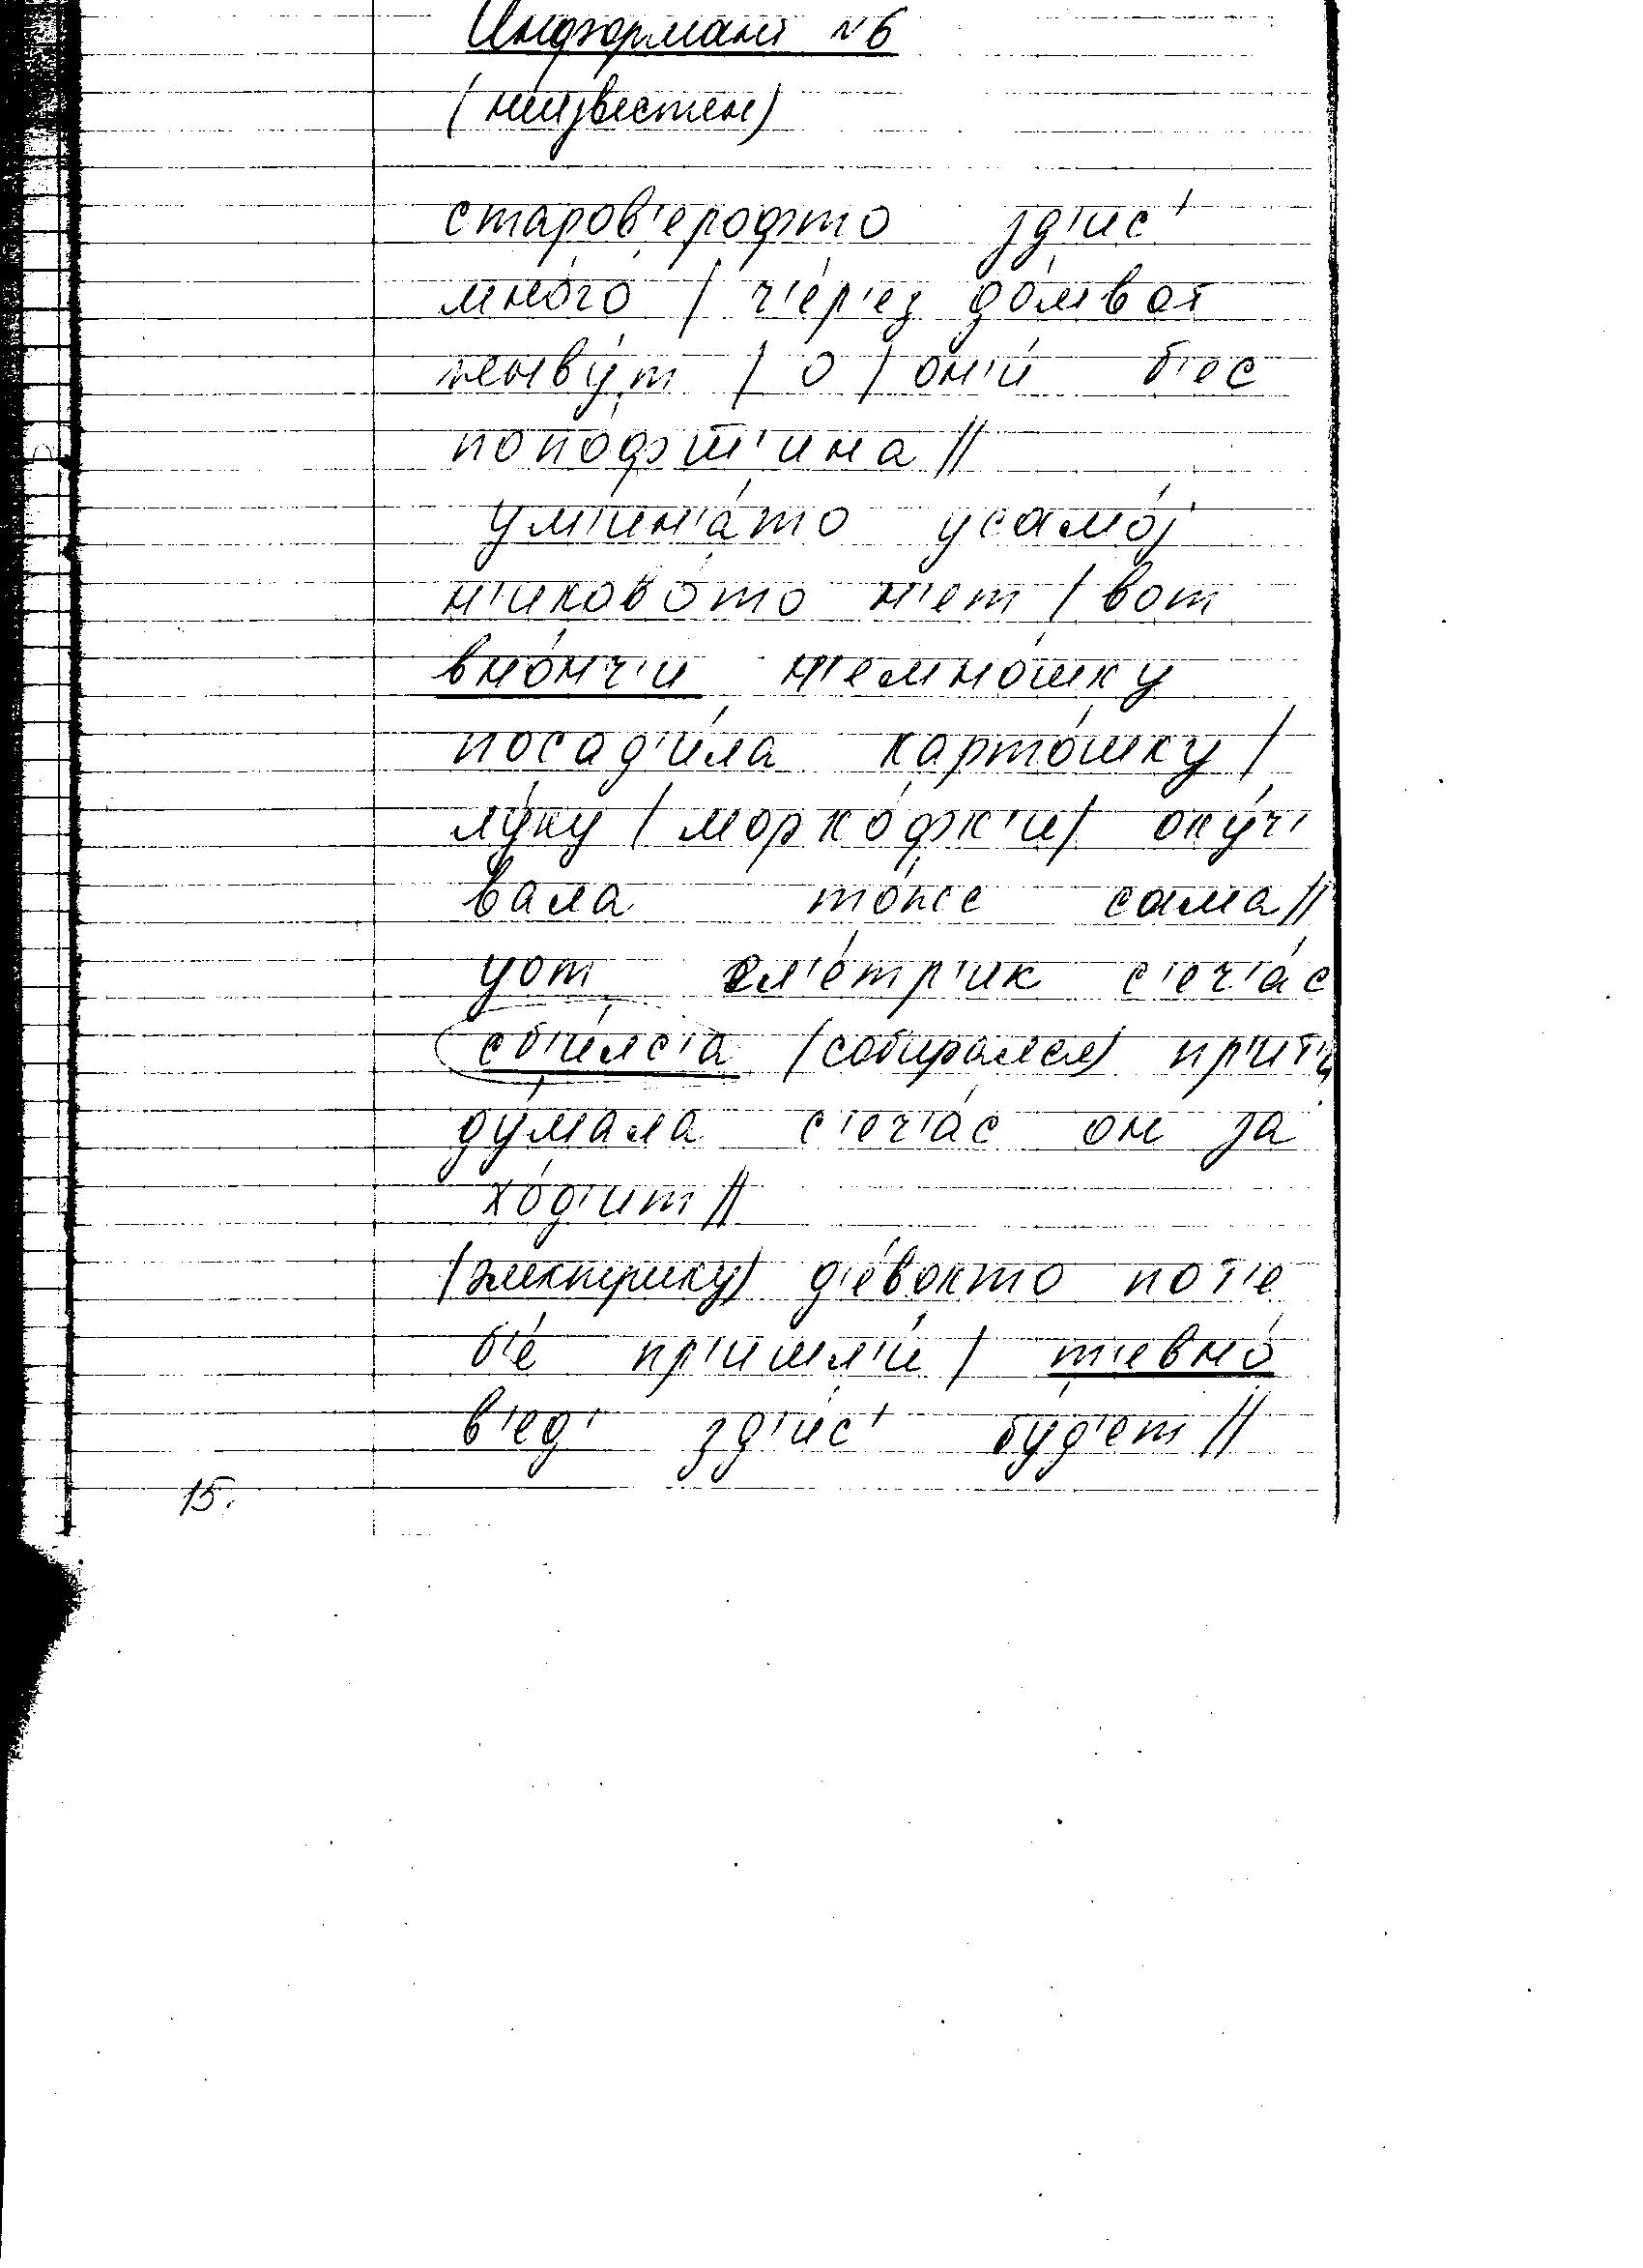 Информант №6
(неизвестен)
старов'ерофто зд'ис'
мно́го / ч'е́р'ез до́мвот
жыву́т / о / он'и́ б'ес
попо́фш'ина //
ум'ин'а́то усамо́j
н'иково́то н'ет / вот
вно́нч'и н'емно́шку
посад'и́ла карто́шку /
лу́ку / морко́фк'и / оку́ч'
вала то́же сама //
уот ел'е́тр'ик с'еч'а́с
сб'и́лс'а (собирался) пр'ит'и
ду́мала с'еч'а́с он за
хо́д'ит //
(электрику) д'е́вокто пот'е
б'е́ пр'ишл'и́ / т'евно́
в'ед' зд'ис' бу́д'ет //
15.